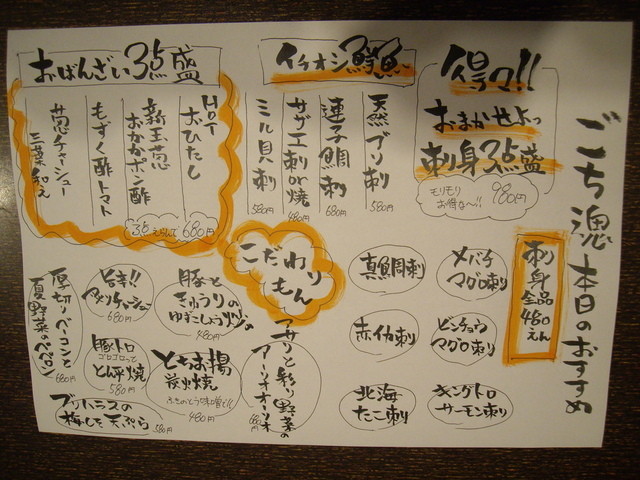 ごち惣 本日のおすすめ
得々!!
おまかせよっ
刺身3点盛
モリモリ
お得な〜!!
980円
刺身全品480えん
メバチ
マグロ刺
ビンチョウ
マグロ刺
キングトロ
サーモン刺
真魚周刺
赤イカ刺
北海
たこ刺
イチオシ鮮魚
天然ブリ刺
580円
連子鯛刺
680円
サザエ刺or焼
480円
ミル貝刺
580円
おばんざい3点盛
HOTおひたし
新玉葱
おかかポン酢
もずく酢トマト
葱チャーシュー
三葉和え
3点えらんで680円
こだわり
もん
アサリと彩り野菜の
アーリオオーリオ
豚と
きゅうりの
ゆずこしょう炒め
480円
とちお揚
炭火焼
ふきのとう味噌で!!
480円
旨辛!!
680円
豚トロ
ゴロゴロって
とん平焼
580円
梅しそ天ぷら
580円
厚切りベーコンと
夏野菜のペペロン
680円